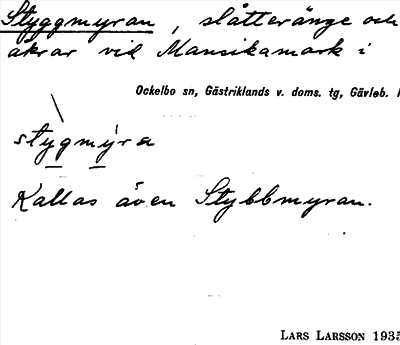 Styggmyran, slåtteränge och
åkrar vid Mansikamark i
Ockelbo sn, Gästriklands v. doms. tg, Gävleb. l
stygmýra
Kallas även Stybbmyran.
LARS LARSSON 1935